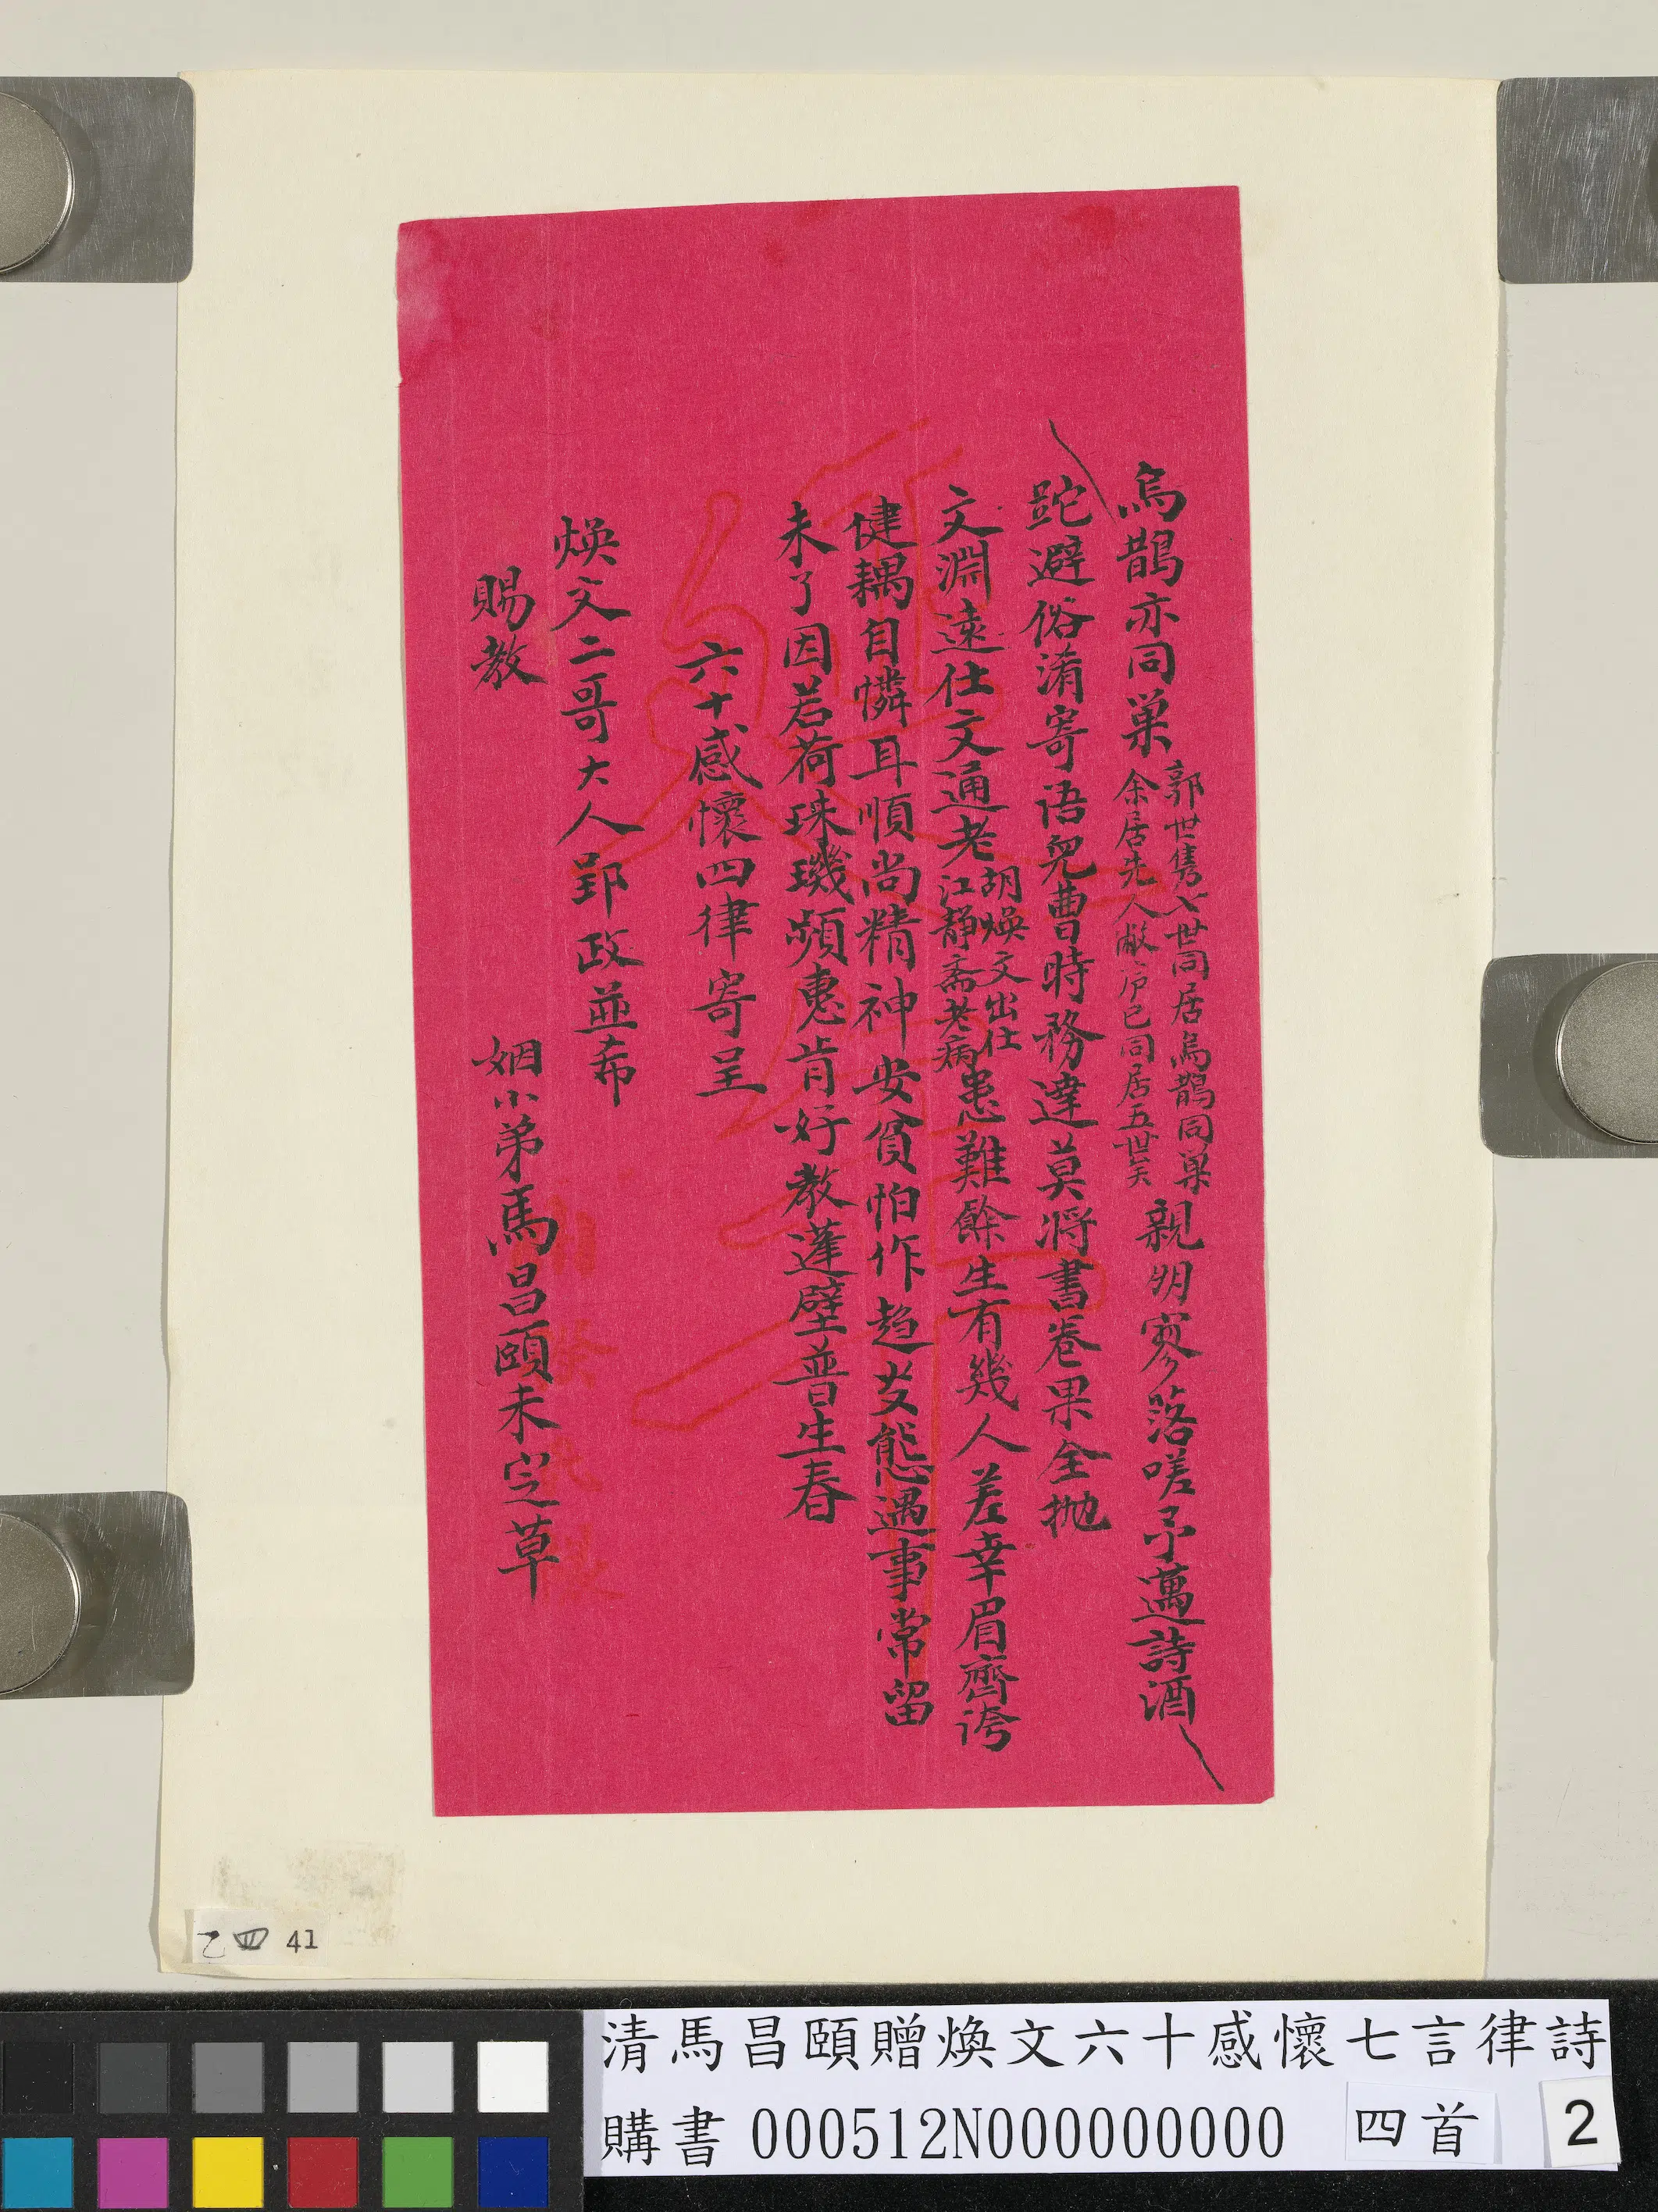 烏鵲亦同巢
郭世雋八世同居烏鵲同巢
余居先人敝廬已同居五世矣
親朋寥落嗟予邁詩酒
跎避俗淆寄語兒曹時務達莫將書卷果全抛
文淵遠仕文通老
胡煥文出仕
江靜斋老病
患難餘生有幾人差幸眉齊誇
健耦自憐耳順尚精神安貧怕作趋炎態遇事常留
未了因若荷珠璣頻惠肯好教蓬壁普生春
六十感懷四律寄呈
煥文二哥大人郢政並希
賜教
姻小弟馬昌頤未定草
乙四 41
清馬昌頤贈煥文六十感懷七言律詩
購書 000512N000000000 四首 2